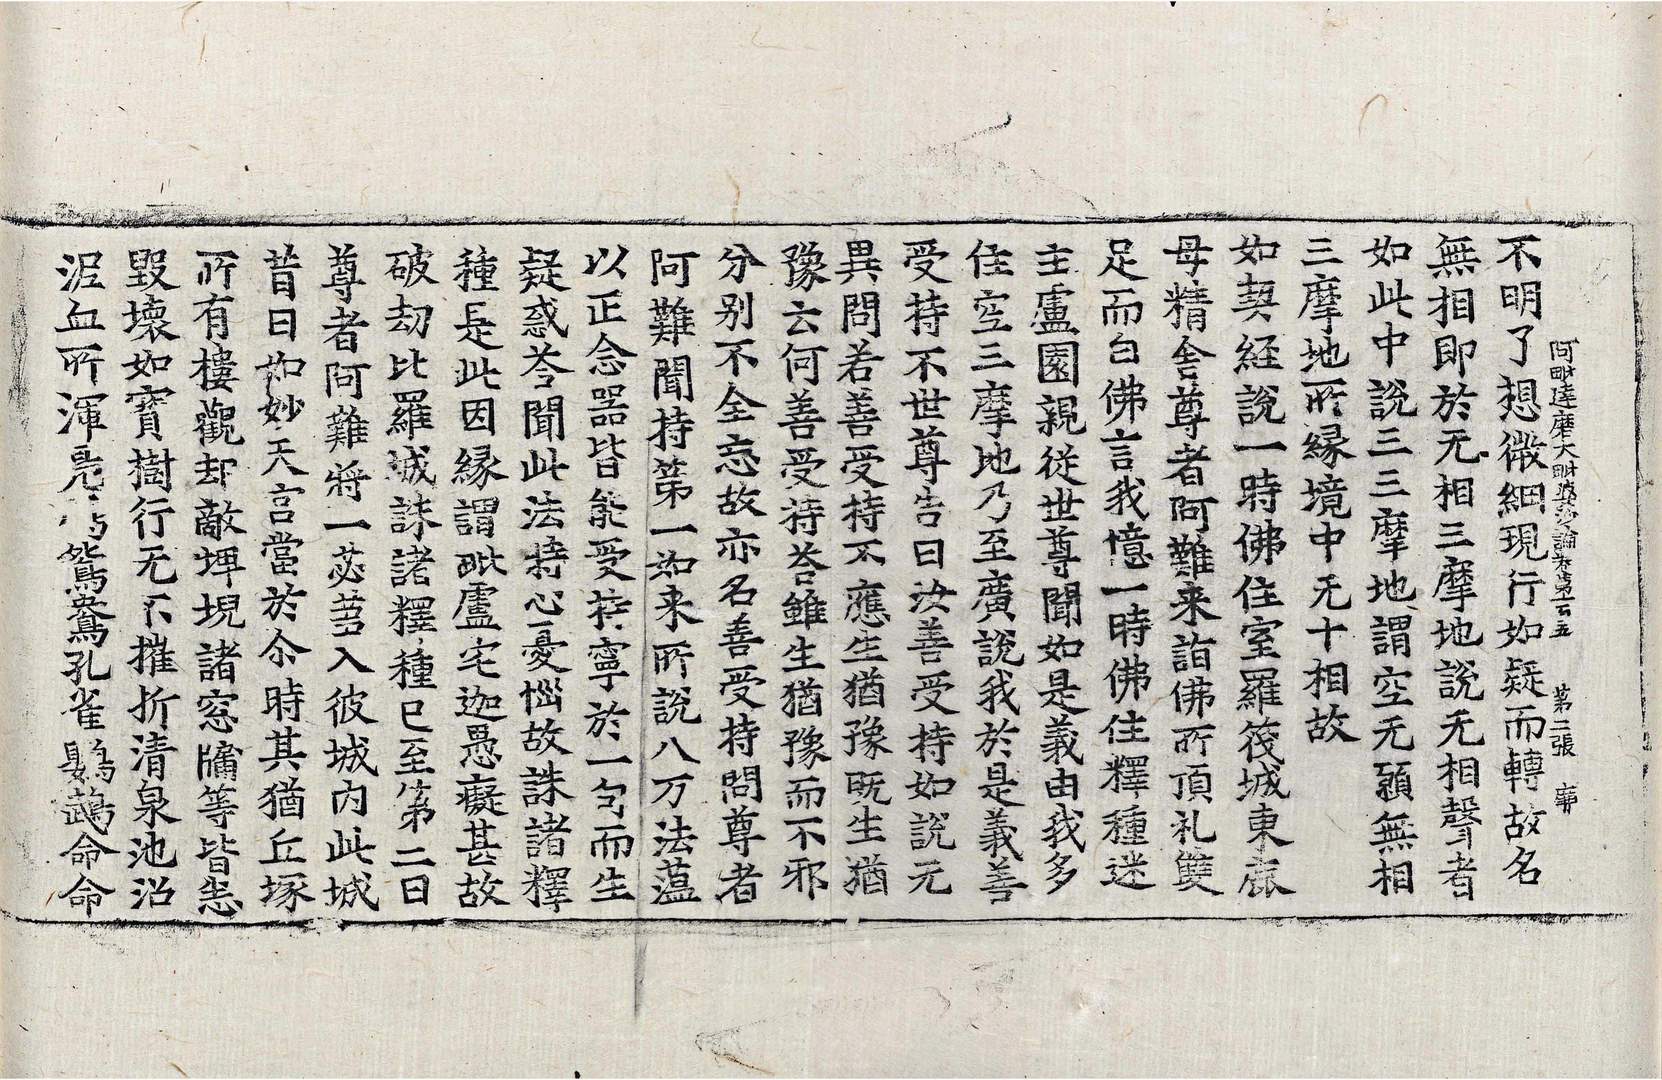 阿毗達磨大毗婆沙論卷第一百五　第二張　廓
不明了想微細現行如疑而轉故名
無相即於无相三摩地說无相聲者
如此中說三三摩地謂空无願無相
三摩地所緣境中无十相故
如契經說一時佛住室羅筏城東鹿
母精舍尊者阿難来詣佛所頂礼雙
足而白佛言我憶一時佛住釋種迷
主盧園親從世尊聞如是義由我多
住空三摩地乃至廣說我於是義善
受持不世尊告曰汝善受持如說无
異問若善受持不應生猶豫既生猶
豫云何善受持荅雖生猶豫而不邪
分别不全忘故亦名善受持問尊者
阿難聞持第一如来所說八万法蘊
以正念器皆能受持寧於一句而生
疑惑荅聞此法時心憂惱故誅諸釋
種是此因緣謂毗盧宅迦愚癡甚故
破劫比羅城誅諸釋種已至第二日
尊者阿難將一苾芻入彼城内此城
昔日如妙天宮當於尒時其猶丘塚
所有樓觀却敵埤堄諸窓牖等皆悉
毀壞如寶樹行无不摧折清泉池沼
泥血所渾鳧鴈鴛鴦孔雀鸚鵡命命